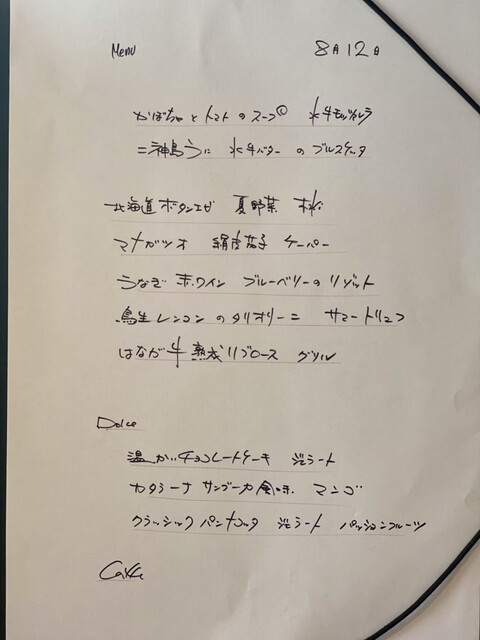 Menu 8月12日
かぼちゃとトマトのスープ 水牛モッツァレラ
二神島うに 水牛バターのブルスケッタ
北海道ボタンエビ 夏野菜 桃
マナガツオ 絹皮茄子 ケーパー
うなぎ 赤ワイン ブルーベリーのリゾット
レンコンのタリオリーニ サマートリュフ
はなが牛 熟成リブロース グリル
Dolce
温かいチョコレートケーキ ジェラート
カタラーナ サングリア風味 マンゴ
クラッシックパンナコッタ ジェラート パッションフルーツ
Caffe